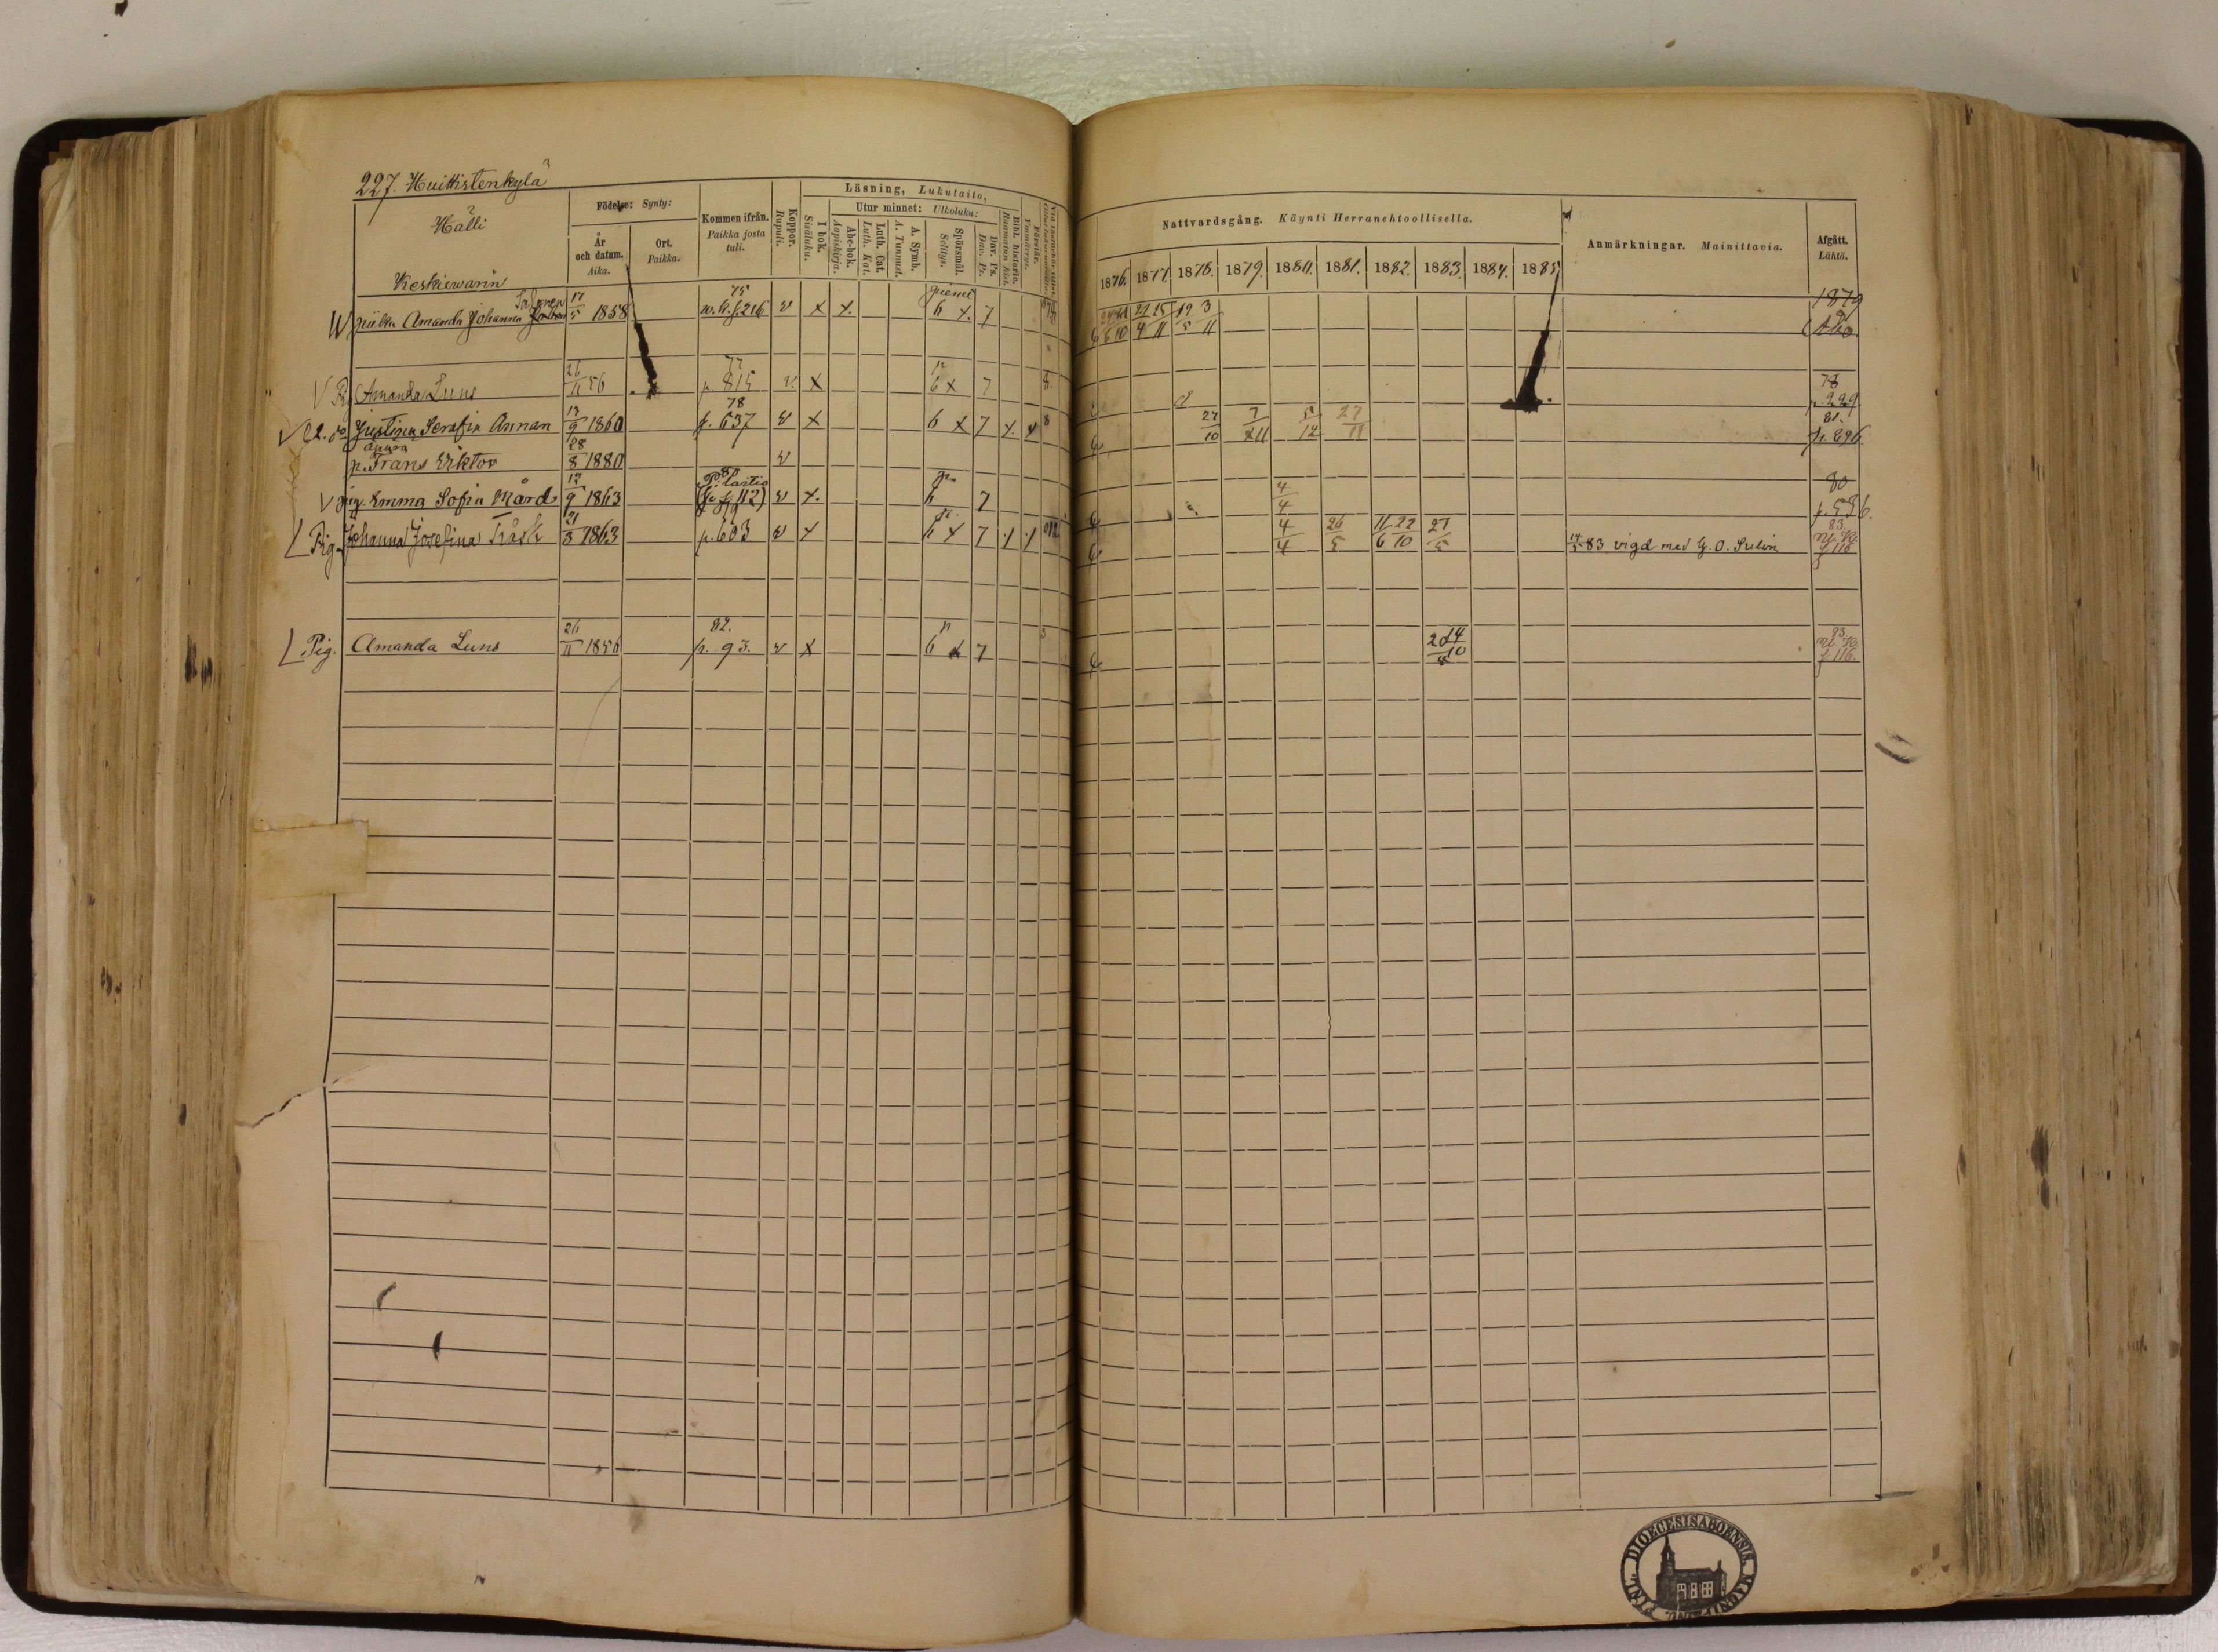 227. Huittistenkylä
Hälli
Keskiwarin
Födelse: Synty:
År och datum. Aika.
Ort. Paikka.
Kommen ifrån. Paikka josta tuli.
Koppor. Rupuli.
Läsning, Lukutaito,
I bok. Sisäluku.
Utur minnet: Ulkoluku:
Abc-bok. Aapiskirja.
Luth. Cat. Luth. Kat.
A. Symb. A. Tunnust.
Spörsmål. Selitys.
Dav. Ps. Dav. Ps.
Bibl. historie. Raamatun hist.
Förstår. Ymmärrys.
Nattvardsgång. Käynti Herranehtoollisella.
1876. 1877. 1878. 1879. 1880. 1881. 1882. 1883. 1884. 1885.
Anmärkningar. Mainittavia.
Afgått. Lähtö.
piika Amanda Johanna 17/5 1858 75 w. k. f. 216 v x x. 6 x. 7 19/5 3/11 1879 Åbo.
Pig Amanda Luns 26/11 56 77 p. 815 v. x 6 x 7 8. 78 p. 229
Justina Serafia Annan 13/9 1860 78 p. 637 v x 6 x 7 x. x 8 27/10 7/11 5/12 27/11 81. p. 896
p. Frans Viktor 28/8 1880 v
pig. Emma Sofia Mård 12/9 1863 80 v x. 6 7 4/4 80 p. 536.
Pig. Johanna Josefina Träsk 21/3 1863 p. 603 v x 6 x 7 4/4 26/5 11/6 22/10 27/5 14/5 83 vigd med G. O. Sulin 83. f 116
Pig. Amanda Luns 26/11 1856 82. p. 93. v x 6 x 7 20/8 14/10 83. f 116.
FINL. DIOECESIS ABOENSIS. MAGNI